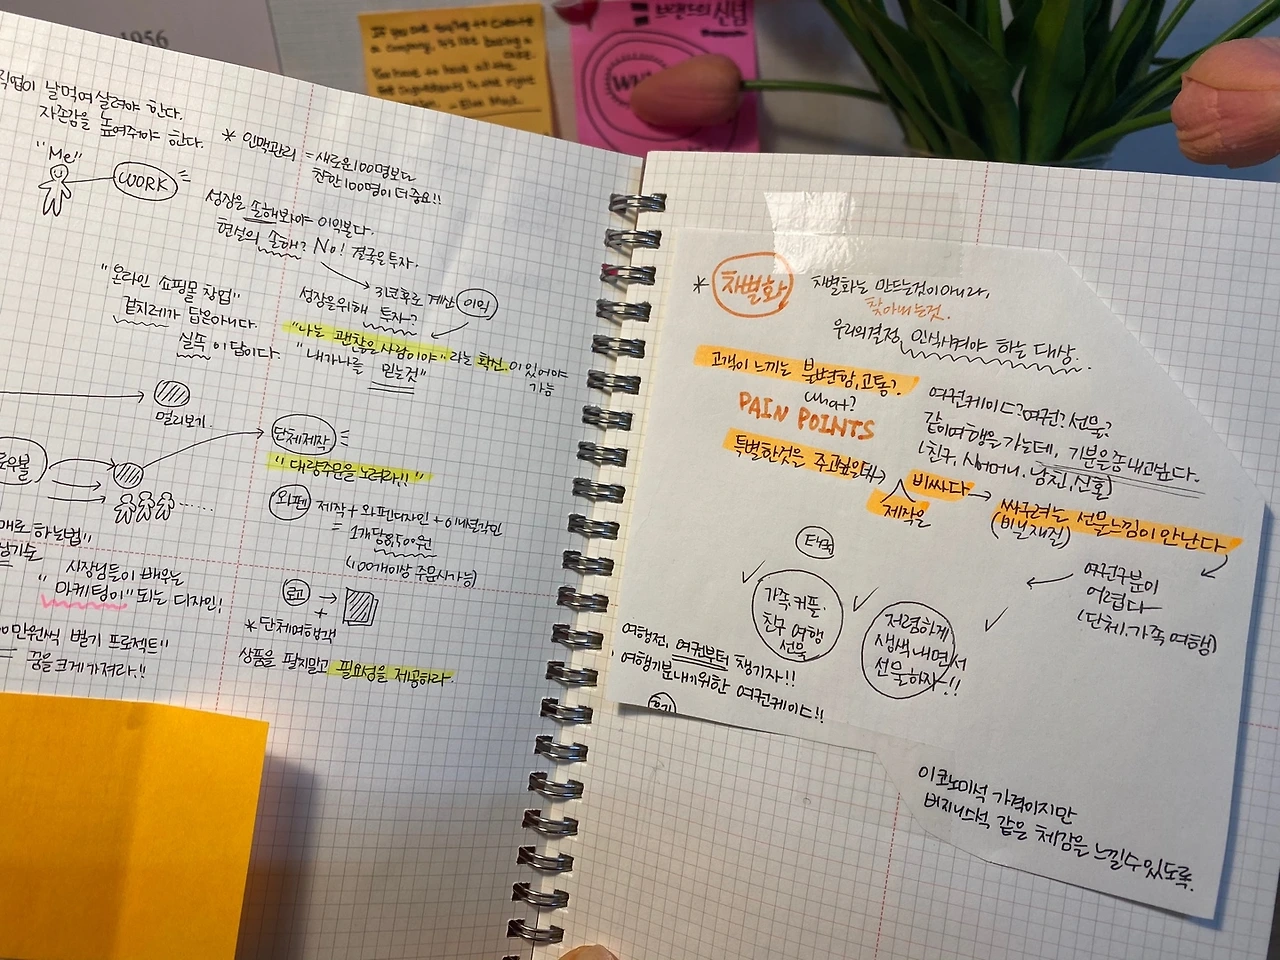 1956
If you are trying to create
a company, it's like baking a
cake.
You have to have all the
ingredients in the right
Elon Musk
브랜드의 신념
직업이 날 먹여 살려야 한다.
자존감을 높여주야 한다.
"Me"
WORK
* 인맥관리 = 새로운 100명보다
찐한 100명이 더 중요!!
성장은 손해봐야 이익본다.
현실의 손해? No! 결국은 투자.
31코후로 계산 이익
성장을위해 투자?
"온라인 쇼핑몰 창업"
겉치레가 답은아니다.
실속이 답이다.
"나는 괜찮은 사람이야" 라는 확신이 있어야
가능
"내가 나를 믿는것"
멀리보기.
단체제작
"대량주문을 노려라!!"
와펜 제작 + 와펜디자인 +
= 1개당 8,500원
(100개이상 주문시가능)
매로 하는법"
남기노
사장님들이 배우는
"마케팅이" 되는 디자인!
로고 → +
* 단체여행객
00만원씩 벌기 프로젝트"
꿈을 크게 가져라.!!
상품을 팔지말고 필요성을 제공하라.
* 차별화
차별화는 만드는것이 아니라,
찾아내는것.
우리의결정 인식시켜야 하는 대상.
고객이 느끼는 불편함, 고통?
what?
PAIN POINTS
여권케이드? 여권? 선물?
같이여행을 가는데, 기분을 좀 내고싶다.
(친구, 시어머니, 남친, 신혼)
특별한것을 주고싶은데 → 비싸다 → 싸구려는 선물느낌이 안난다
제작은
(비닐재질)
타겟
가족, 커플.
친구 여행
선물
저렴하게
생색내면서
선물하자!!
여권구분이
어렵다
(단체, 가족 여행)
여행전, 여권부터 챙기자!!
여행기분내기위한 여권케이드!!
이코노미석 가격이지만
비지니스석 같은 체감을 느낄수있도록.